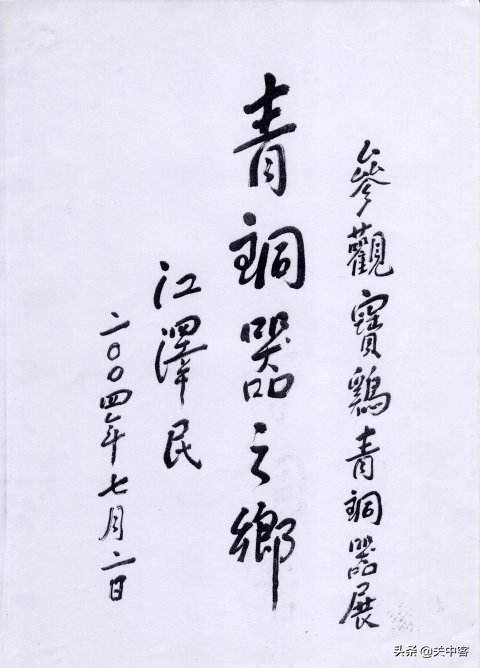 參觀寳鷄青銅器展
青銅器之鄉
江澤民
二〇〇四年七月二日
头条 @关中客